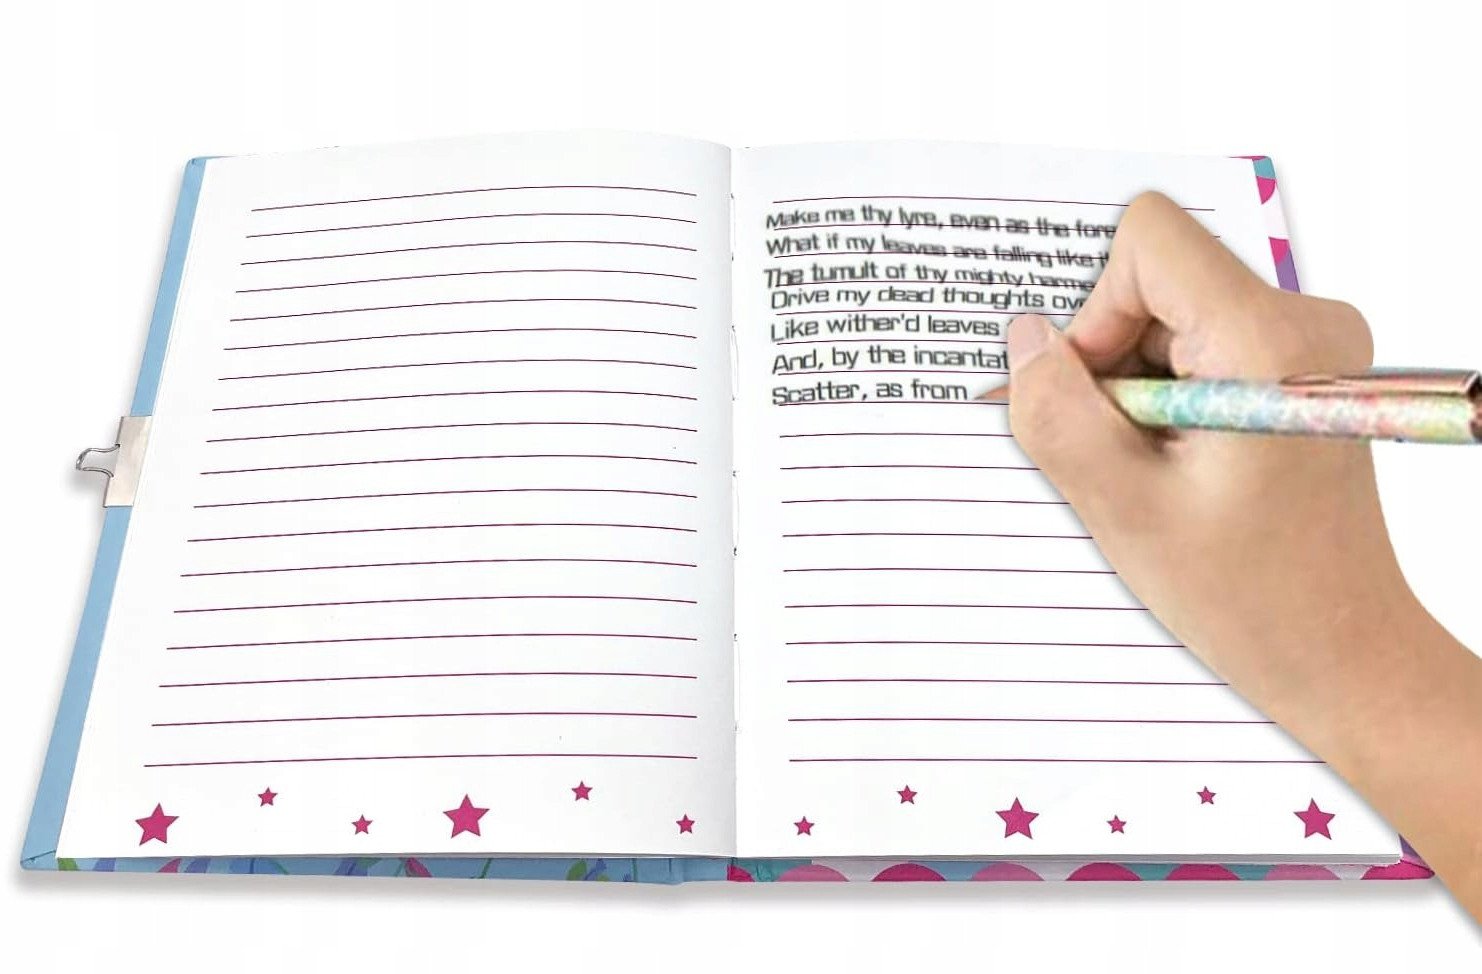 Make me thy lyre, even as the fore
What if my leaves are falling like
The tumult of thy mighty harmo
Drive my dead thoughts ov
Like wither'd leaves
And, by the incantat
Scatter, as from